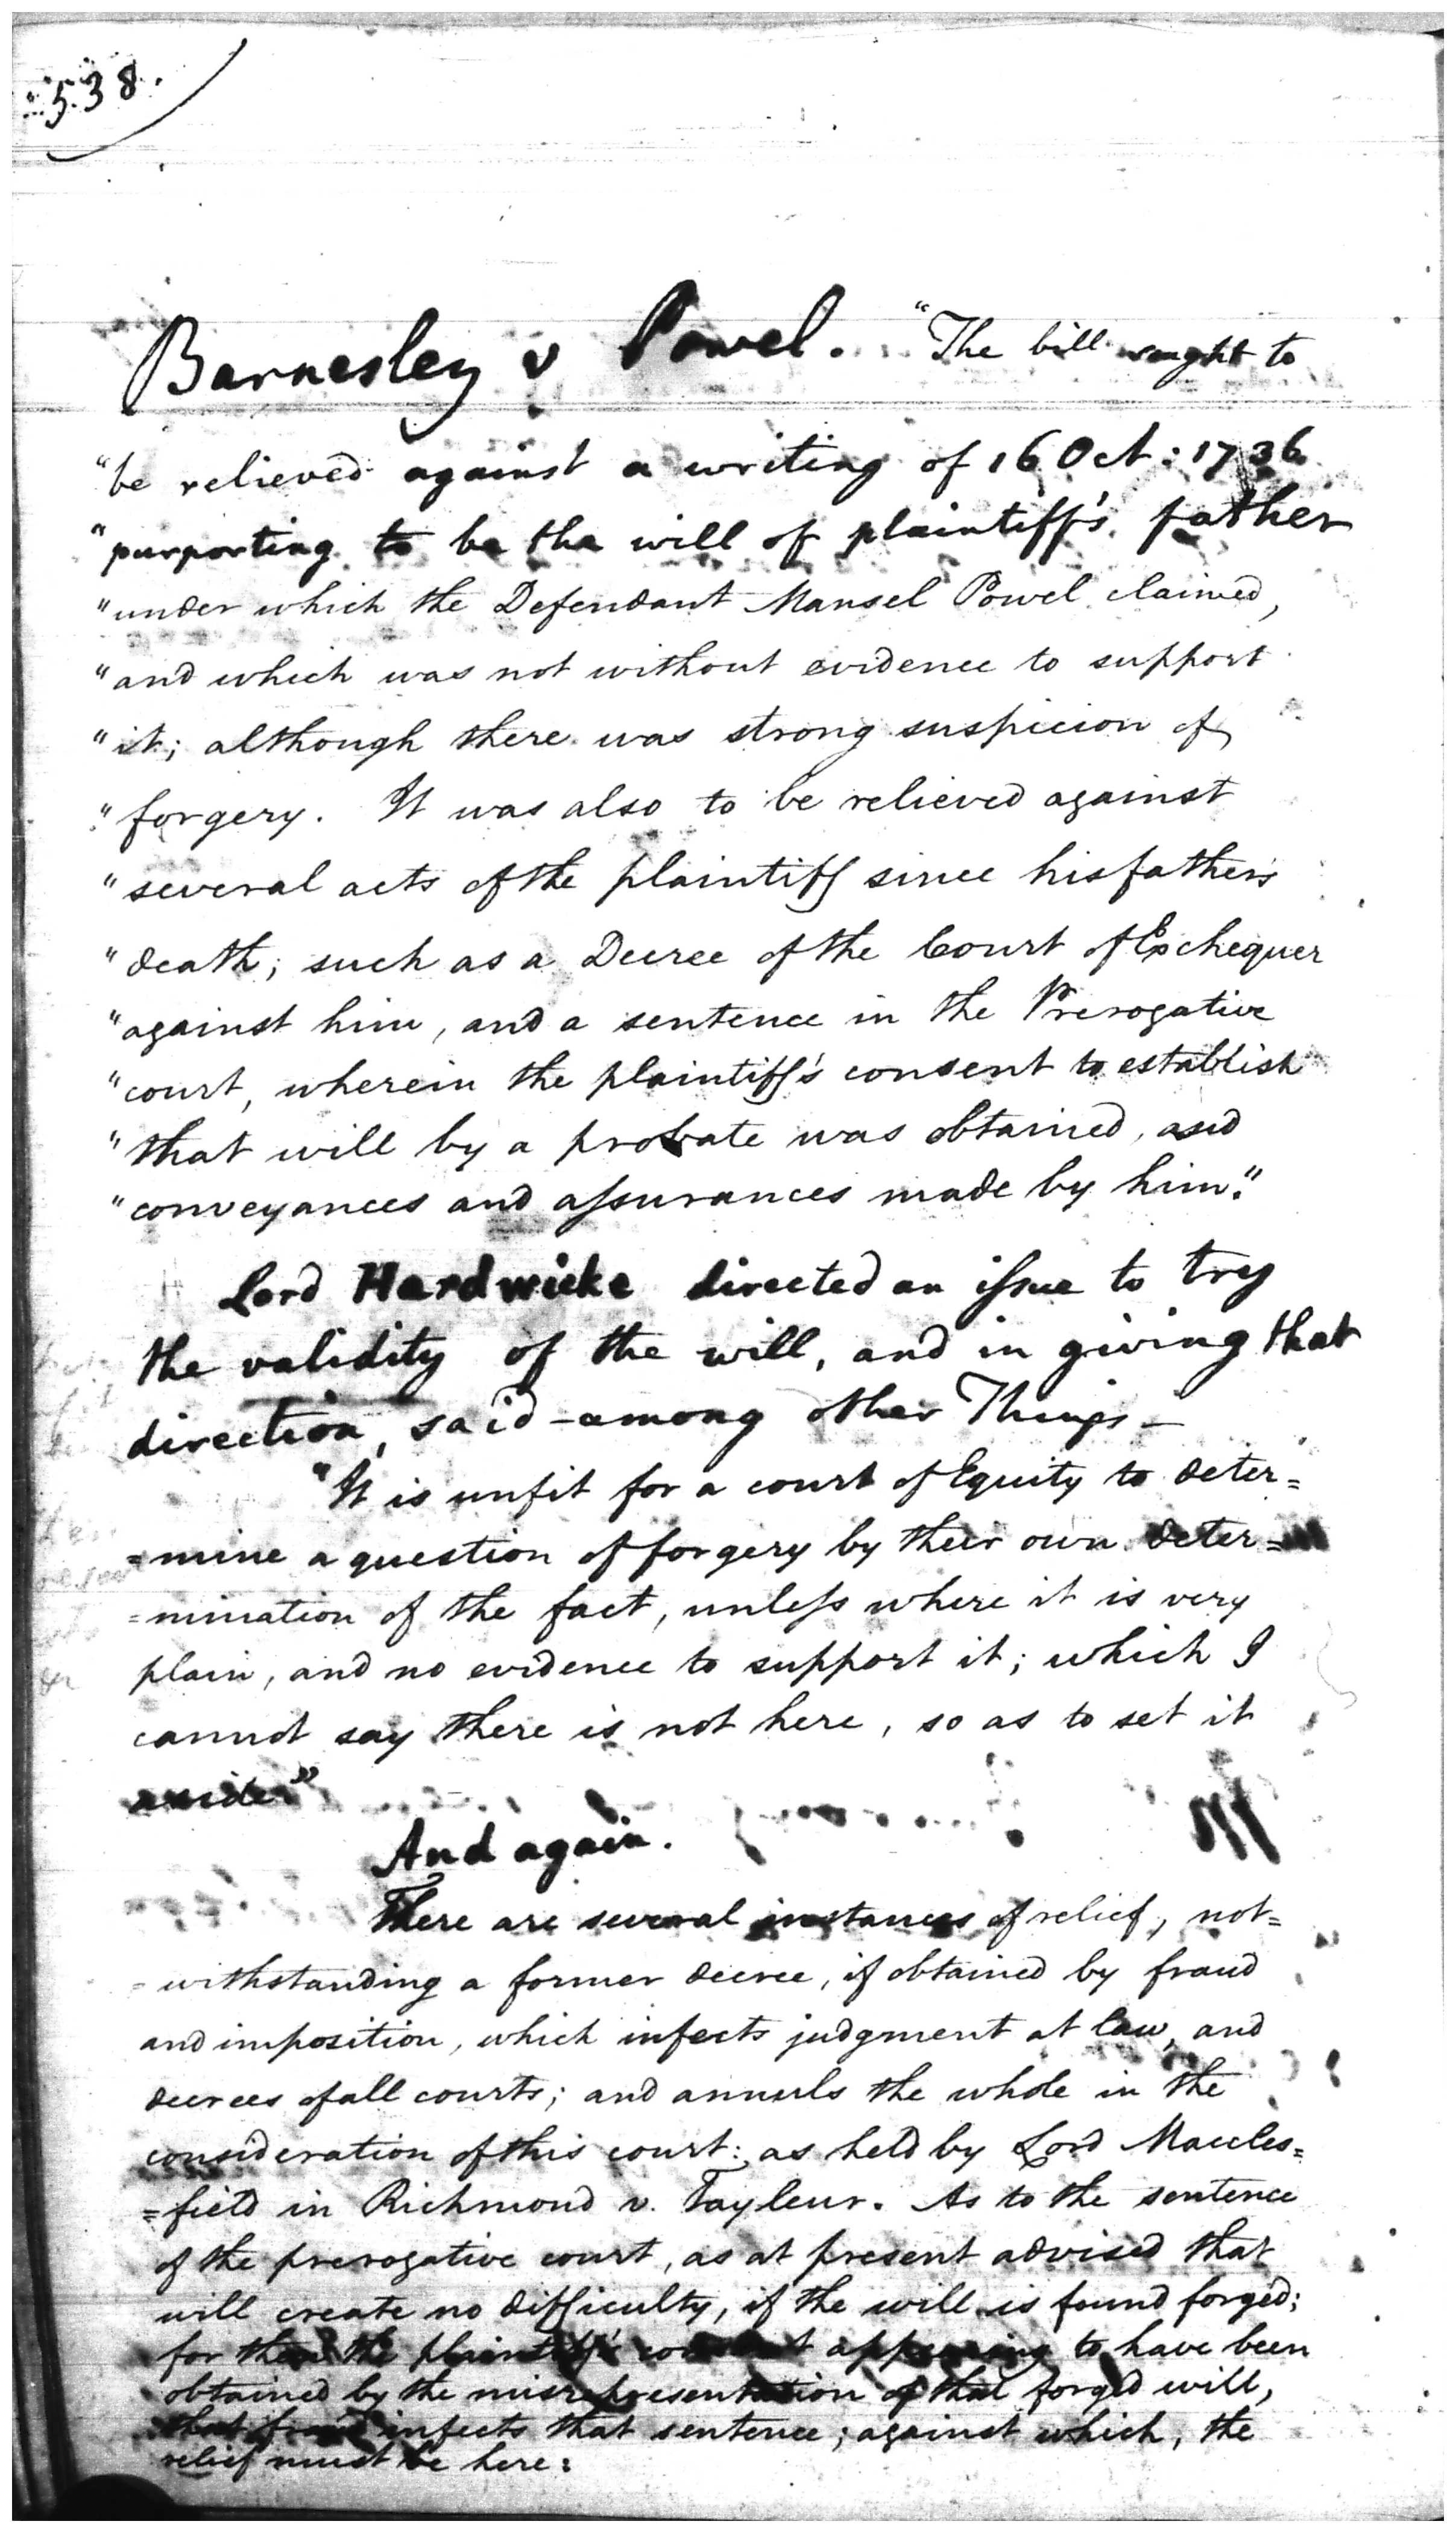 538.
Barnesley v Powel. "The bill sought to
"be relieved against a writing of 16 Oct: 1736
"purporting to be the will of plaintiff's father
"under which the Defendant Mansel Powel claimed,
"and which was not without evidence to support
"it; although there was strong suspicion of
"forgery. It was also to be relieved against
"several acts of the plaintiff since his father's
"death; such as a Decree of the Court of Exchequer
"against him, and a sentence in the Prerogative
"court, wherein the plaintiff's consent to establish
"that will by a probate was obtained, and
"conveyances and assurances made by him."
Lord Hardwicke directed an issue to try
the validity of the will, and in giving that
direction, said - among other Things -
"It is unfit for a court of Equity to deter=
=mine a question of forgery by their own deter=
=mination of the fact, unless where it is very
plain, and no evidence to support it; which I
cannot say there is not here, so as to set it
aside"
And again.
There are several instances of relief, not=
=withstanding a former decree, if obtained by fraud
and imposition, which infects judgment at law, and
decrees of all courts; and annuls the whole in the
consideration of this court: as held by Lord Maccles=
=field in Richmond v. Tayleur. As to the sentence
of the prerogative court, as at present advised that
will create no difficulty, if the will is found forged;
for then the plaintiff's consent appearing to have been
obtained by the misrepresentation of that forged will,
that fraud infects that sentence; against which, the
relief must be here: